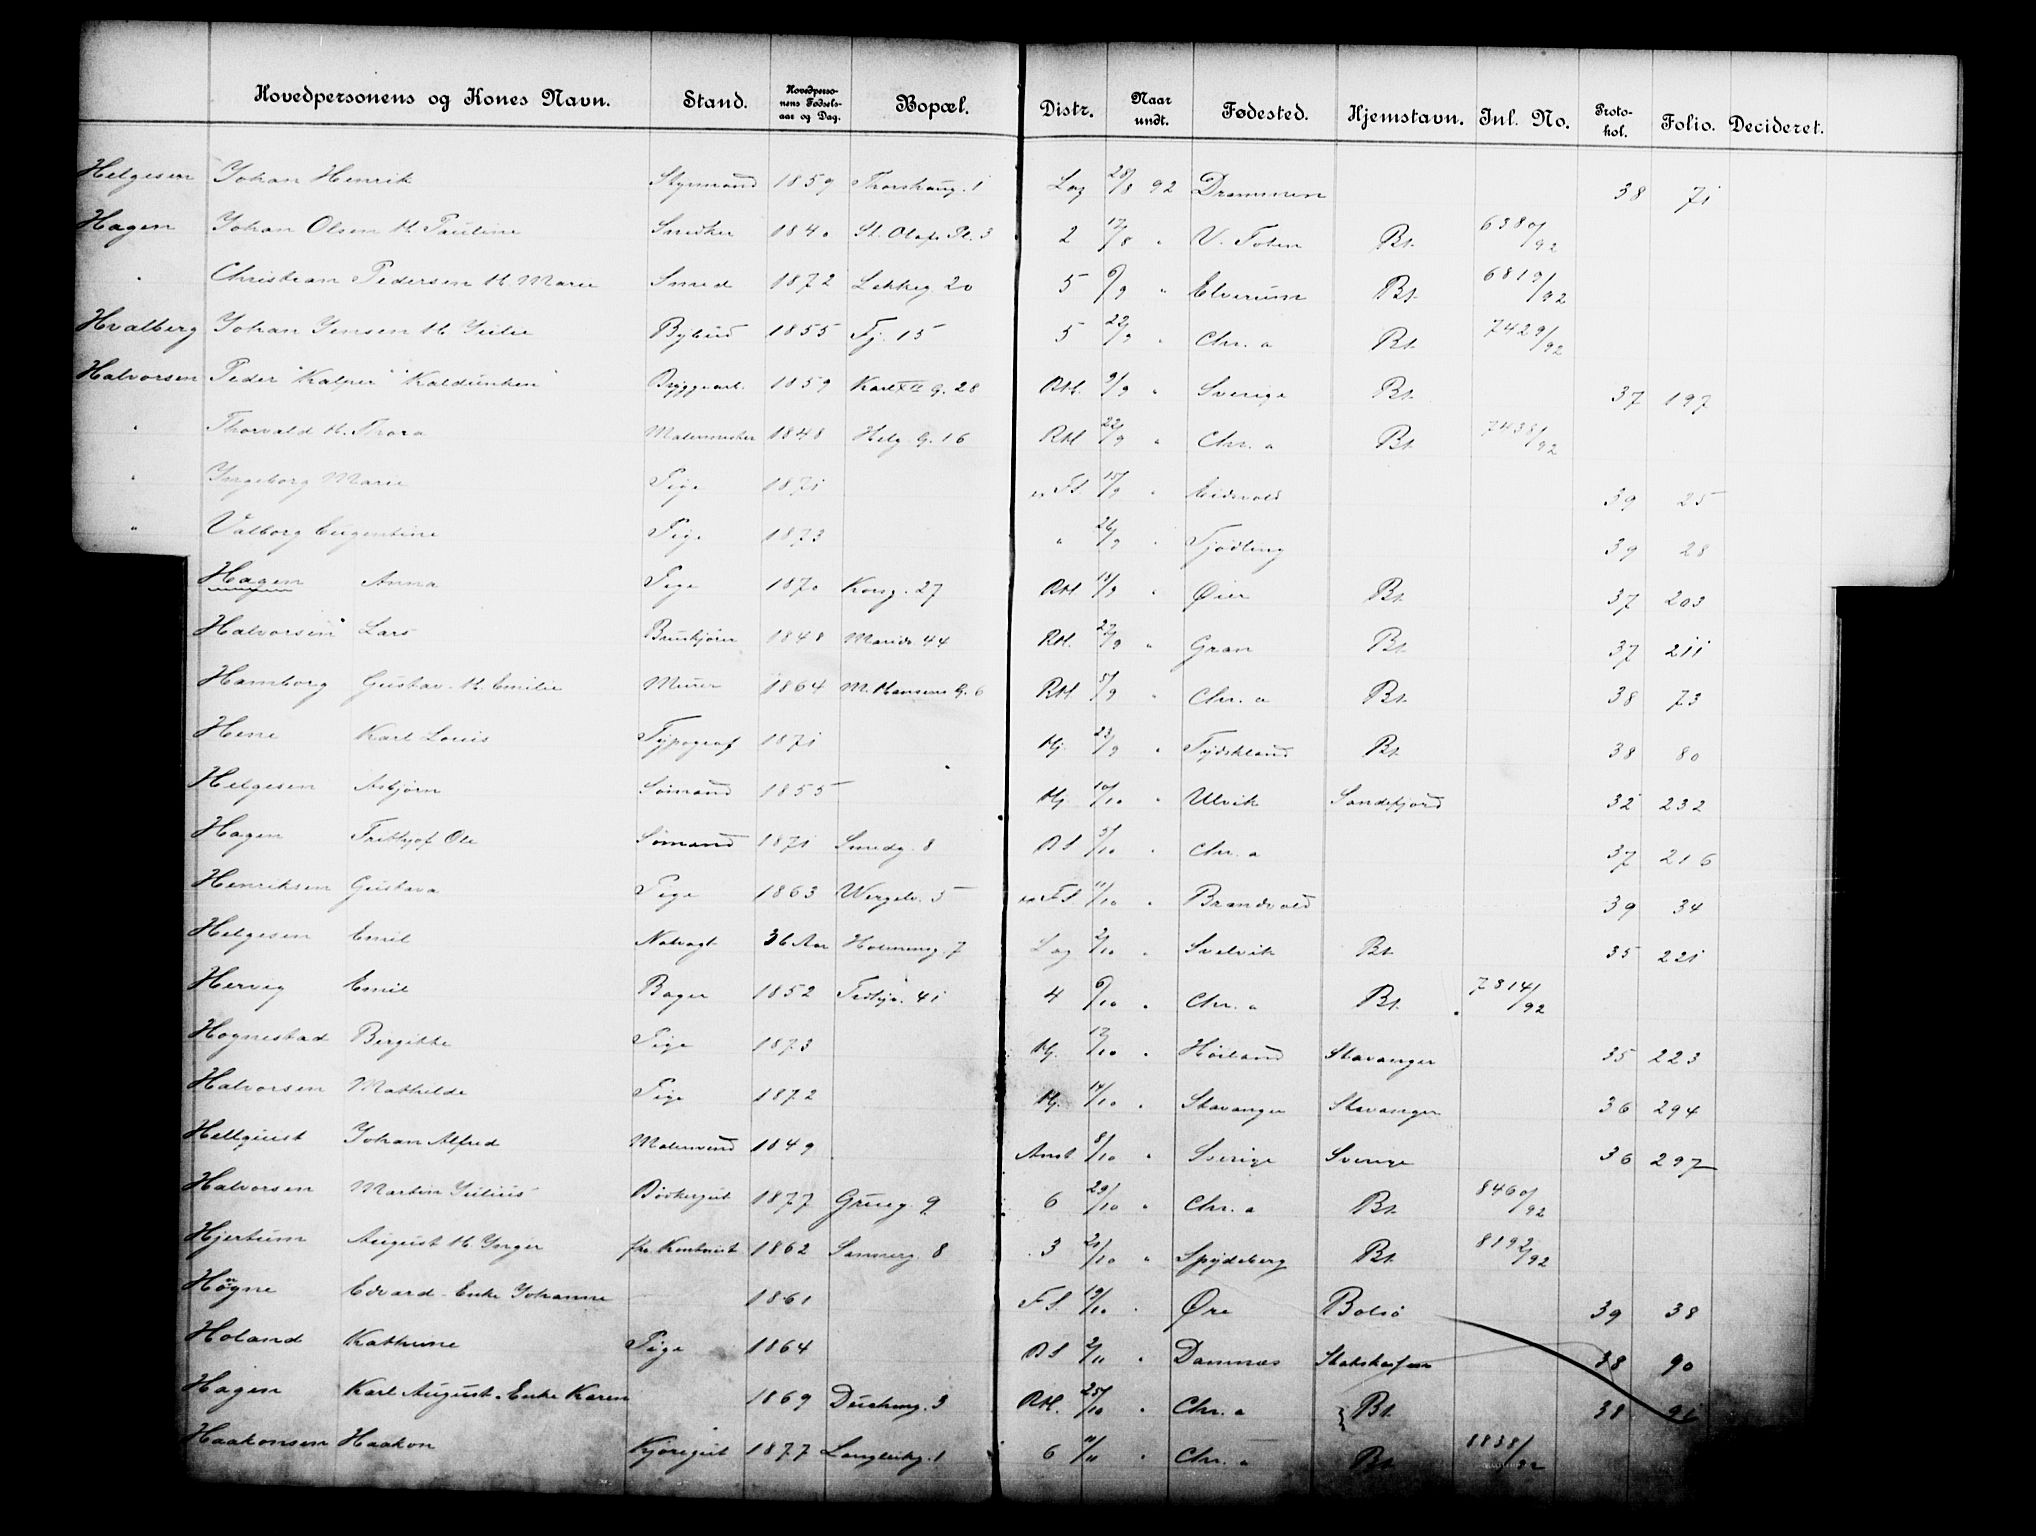 Hovedpersonens og Kones Navn. Stand. Hovedperso-nens Fødsels-aar og Dag. Bopæl. Distr. Naar undt. Fødested. Hjemstavn. Inl. No. Proto-kol. Folio. Decideret.
Helgesen Johan Henrik Styrmand 1859 Thorshaug. 1 Lag 28/8 92 Drammen 38 71
Hagen Johan Olsen M. Pauline Snedker 1840 St. Olafs Pl. 3 2 17/8 " V. Toten Bt. 6380/92
" Christian Pedersen M. Marie Smed 1872 Lakkeg. 20 5 6/9 " Elverum Bt. 6819/92
Hvalberg Johan Jensen M. Julie Bybud 1855 Fj. 15 5 22/9 " Chr. a Bt. 7429/92
Halvorsen Peder "Kalper" "Kaldunken" Bryggearb. 1859 Karl XII G. 28 RM. 9/9 " Sverige Bt. 37 197
" Thorvald M. Thora Malermester 1848 Helg. G. 16 RM 22/9 " Chr. a Bt. 7438/92
" Ingeborg Marie Pige 1871 FS 15/9 " Eidsvold 39 25
" Valborg Eugentine Pige 1873 " 26/9 " Tjødling 39 28
Hagen Anna Pige 1870 Korsg. 27 RM 19/9 " Øier Bt. 37 203
Halvorsen Lars 1848 Marids. 44 RM. 27/9 " Gran Bt. 37 211
Hamborg Gustav M. Emilie Murer 1864 M. Hansens G. 6 RM. 5/9 " Chr. a Bt. 38 73
Hene Karl Louis Typograf 1871 Hj. 23/9 " Tydskland Bt. 38 80
Helgesen Asbjørn Sømand 1855 Hj. 10/10 " Ulvik Sandefjord 32 232
Hagen Frithjof Ole Sømand 1871 Smedg. 8 BS 5/10 " Chr. a 37 216
Henriksen Gustava Pige 1863 Wergelv. 5 FS 11/10 " Brandvold 39 34
Helgesen Emil Natvagt 36 Aar Holmensg. 7 Lag 2/10 " Svelvik Bt. 35 221
Hervig Emil Bager 1852 41 4 6/10 " Chr. a Bt. 7814/92
Hognestad Bergitte Pige 1873 Hj. 12/10 " Høiland Stavanger 35 223
Halvorsen Mathilde Pige 1872 Hj. 14/10 " Stavanger Stavanger 36 294
Hellquist Johan Alfred Malersvend 1849 Anst. 8/10 " Sverige Sverige 36 297
Halvorsen Martin Julius Bødkergut 1877 Grueg. 9 6 29/10 " Chr. a Bt. 8460/92
Hjertum August M. Inger 1862 Sannerg. 8 3 21/10 " Spydeberg Bt. 8192/92
Høgne Edvard Enke Johanne 1861 FS. 19/10 " Øre Bolsø 39 38
Holand Kathrine Pige 1864 BS 2/11 " Damnæs 38 90
Hagen Karl August Enke Karen 1869 3 RM. 25/10 " Chr. a Bt. 38 91
Haakonsen Haakon Kjøregut 1877 Langleikg. 1 6 11/11 " Chr. a Bt. 8838/92